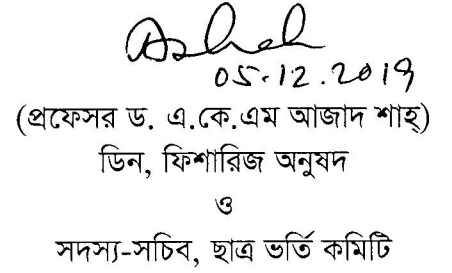 05.12.2019
(প্রফেসর ড. এ.কে.এম আজাদ শাহ্)
ডিন, ফিশারিজ অনুষদ
ও
সদস্য-সচিব, ছাত্র ভর্তি কমিটি